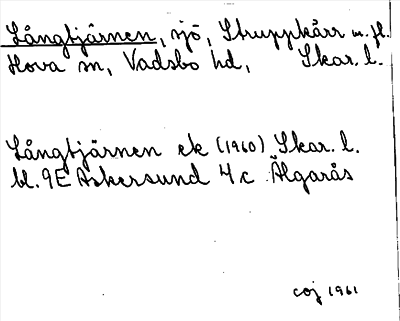 Långtjärnen, sjö, Struppkärr m. fl.
Hova sn, Vadsbo hd, Skar. l.
Långtjärnen ek (1960) Skar. l.
bl. 9E Askersund 4 c Älgarås
coj 1961